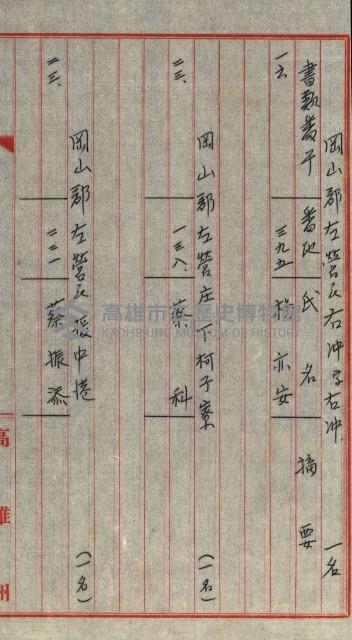 岡山郡左營庄右冲字右冲 一名
書類番号 番地 氏名 摘要
三九五 亦安
岡山郡左營庄下柯子寮 (一名)
二三、 一三八 蔡科
岡山郡左營庄 (一名)
二三、 二二一 蔡振添
高雄州
高雄市立歷史博物館
KAOHSIUNG MUSEUM OF HISTORY